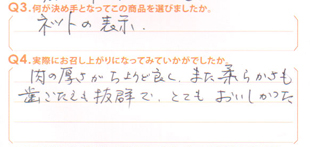 Q3.何が決め手となってこの商品を選びましたか。
ネットの表示.
Q4.実際にお召し上がりになってみていかがでしたか。
肉の厚さがちょうど良く、また柔らかさも
歯ごたえも抜群で、とてもおいしかった